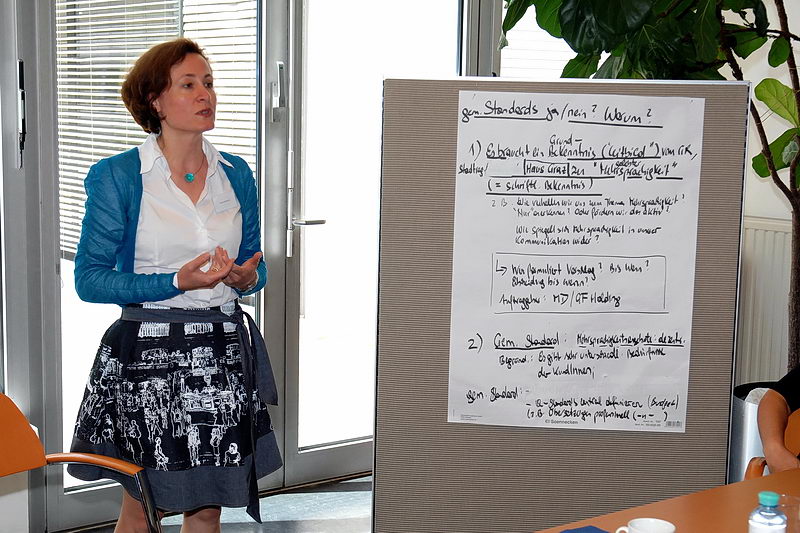 gem. Standards ja/nein? Warum?
Grund-
1) Es braucht ein Bekenntnis ("Leitbild") vom GR,
Stadtreg. Haus Graz zu "Mehrsprachigkeit"
(= schriftl. Bekenntnis)
z.B. Wie verhalten wir uns zum Thema Mehrsprachigkeit?
"Nur" anerkennen? Oder fördern wir das aktiv?
Wie spiegelt sich Mehrsprachigkeit in unserer
Kommunikation wider?
↳ Wer formuliert Vorschlag? Bis wann?
bis wann?
Auftraggeber: MD/GF Holding
2) Gem. Standard: dezentr.
Begründ.: Es gibt sehr unterschiedl. Bedürfnisse
der KundInnen,
gem. Standard: -
- Standards zentral definieren
(z.B. Übersetzungen professionell (-"-)
Soennecken